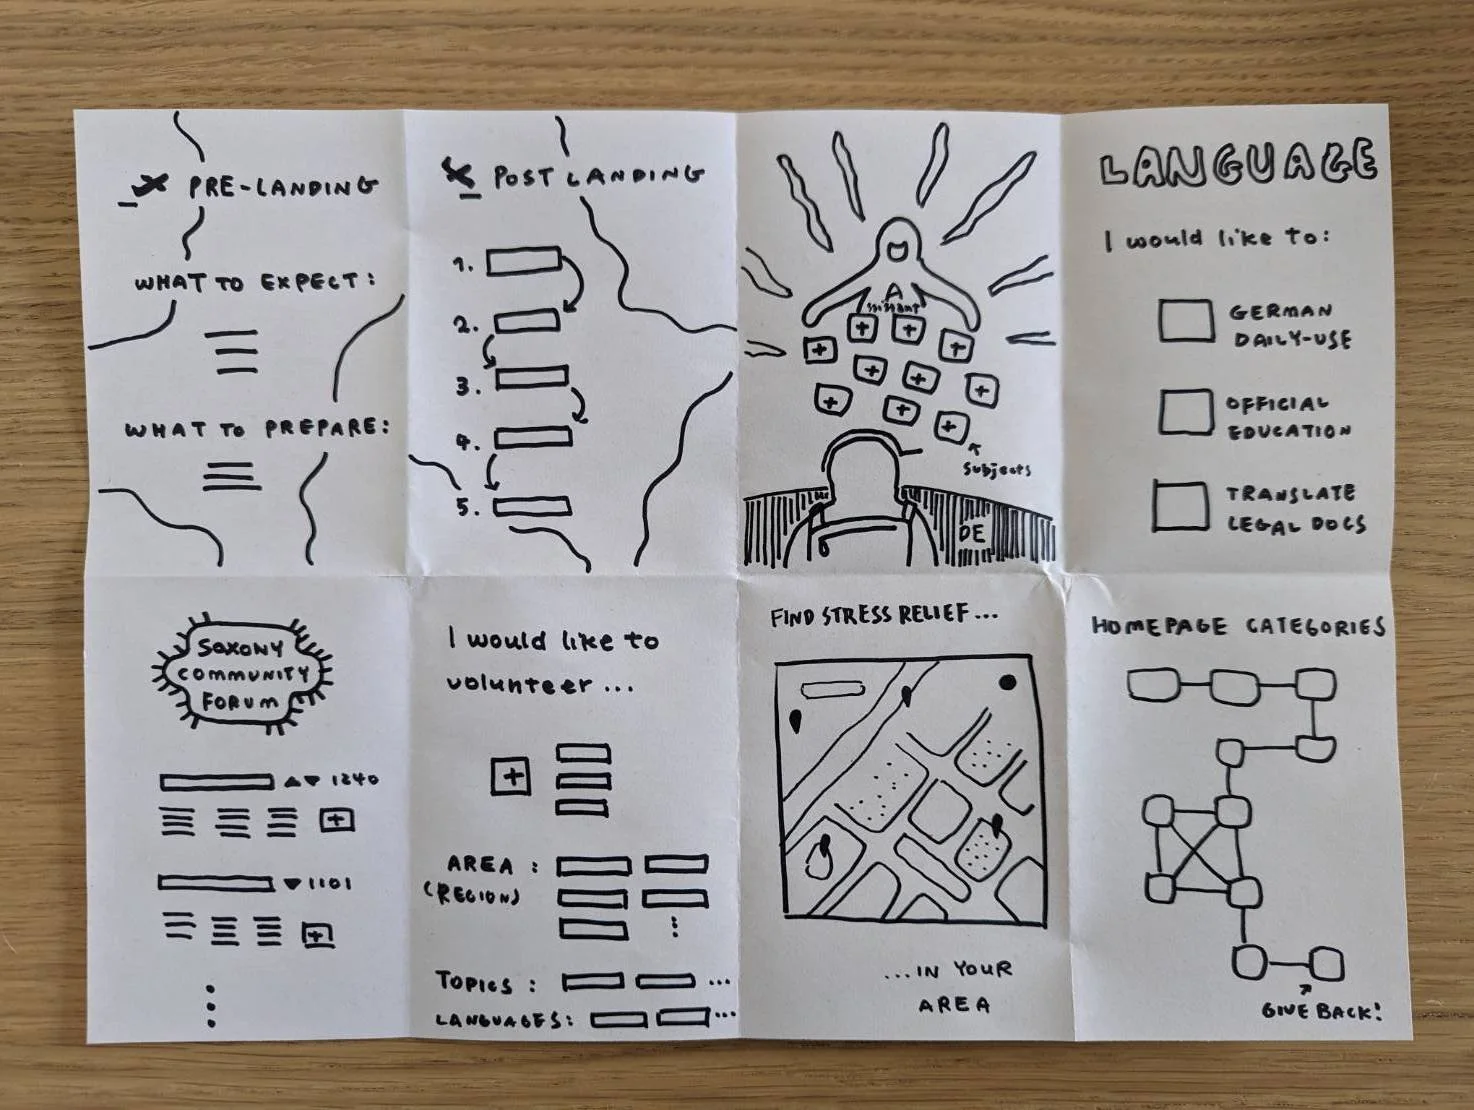 PRE-LANDING
WHAT TO EXPECT:
WHAT TO PREPARE:
POST LANDING
1.
2.
3.
4.
5.
Assistant
subjects
DE
LANGUAGE
I would like to:
GERMAN
DAILY-USE
OFFICIAL
EDUCATION
TRANSLATE
LEGAL DOCS
SAXONY
COMMUNITY
FORUM
1240
1101
I would like to
volunteer ...
AREA :
(REGION)
TOPICS : ...
LANGUAGES: ...
FIND STRESS RELIEF...
...IN YOUR
AREA
HOMEPAGE CATEGORIES
GIVE BACK!